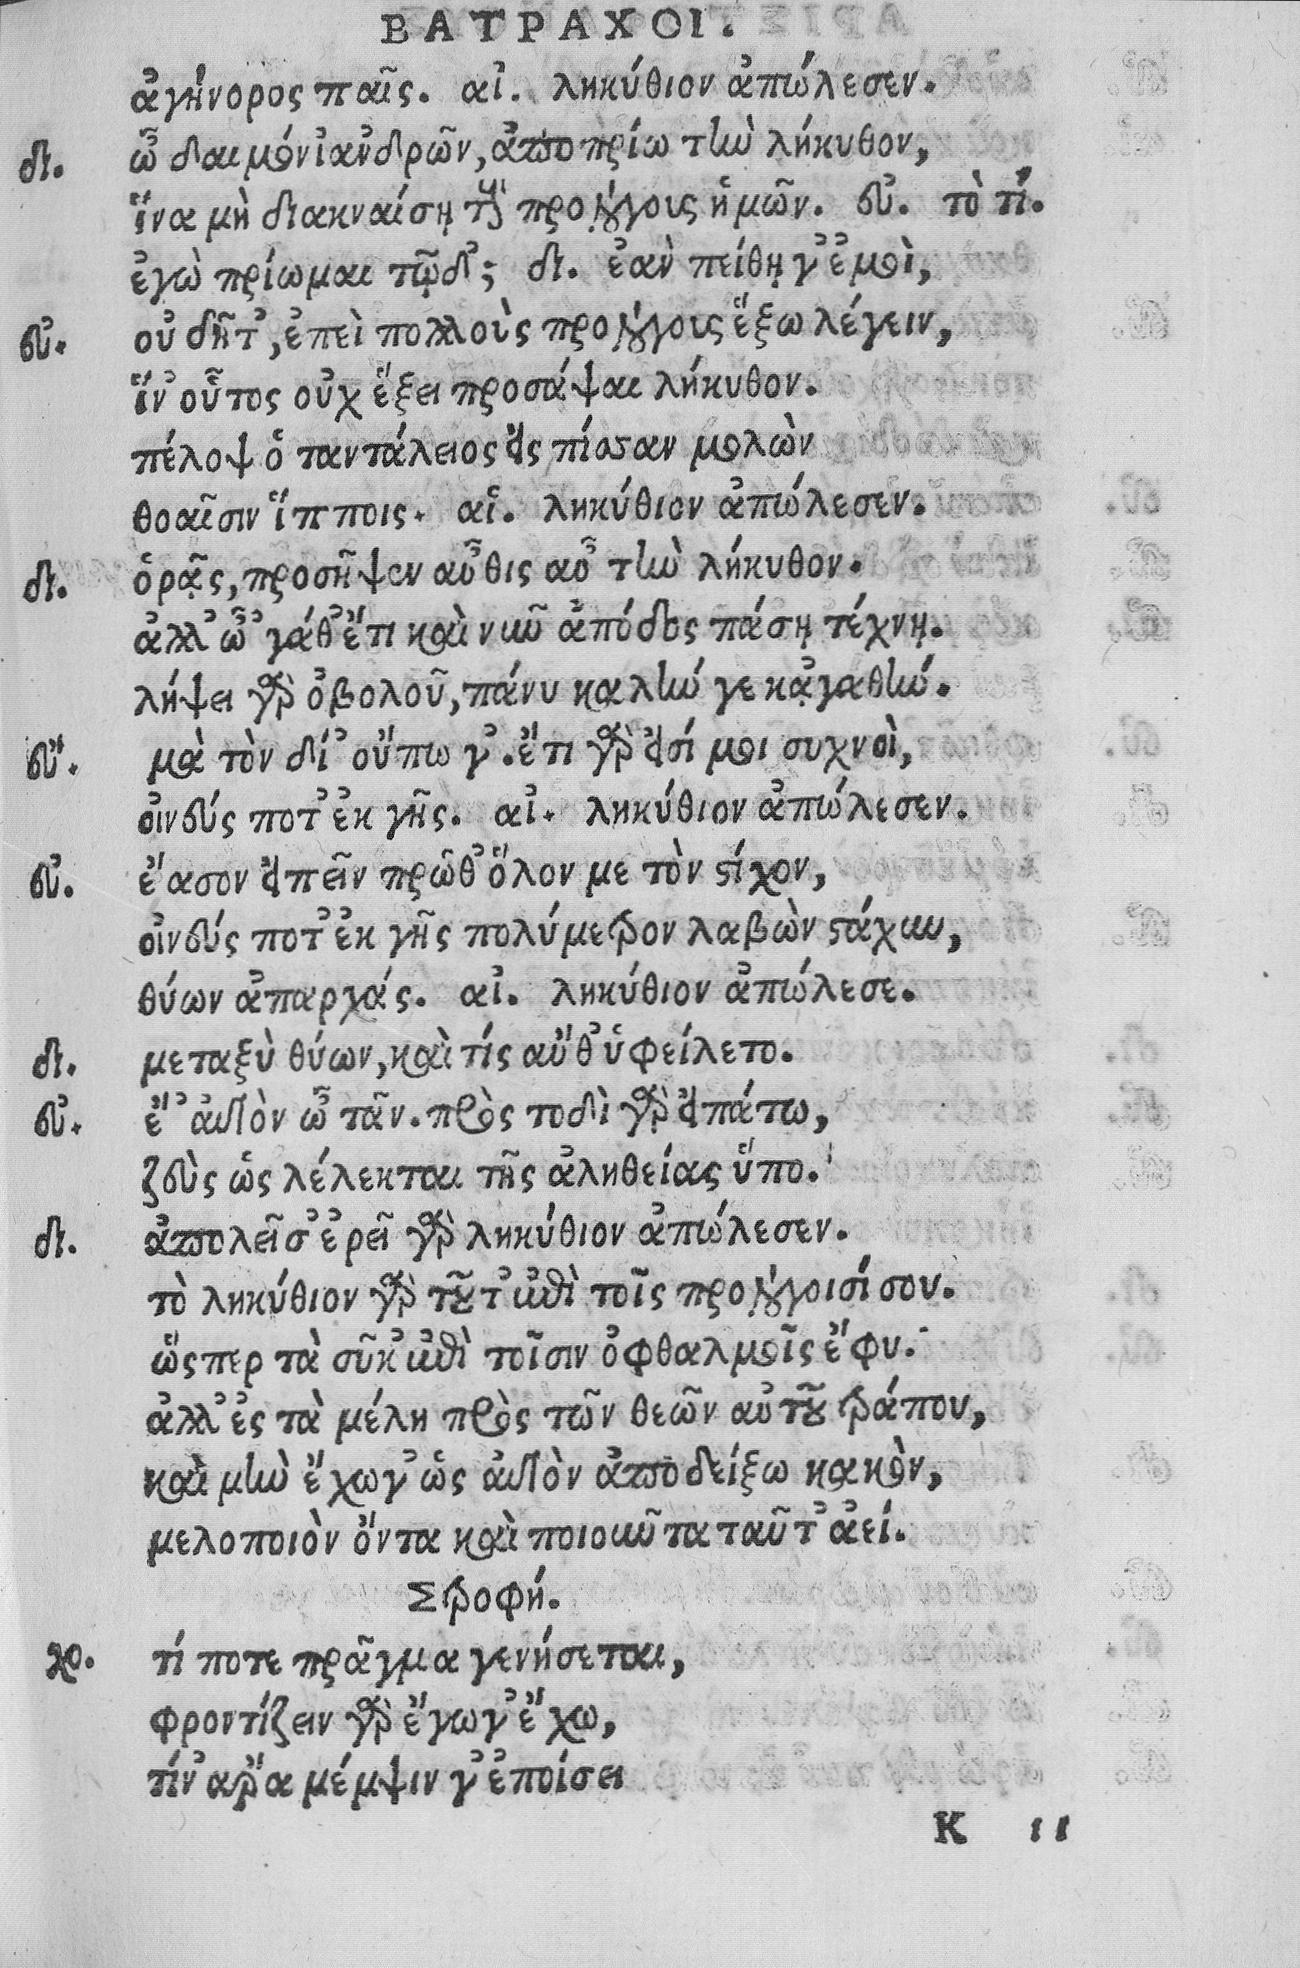 ΒΑΤΡΑΧΟΙ.
ἀγήνορος παῖς. αἰ. ληκύθιον ἀπώλεσεν.
δι. ὦ δαιμόνι' ἀνδρῶν, ἀποπρίω τὴν λήκυθον,
ἵνα μὴ διακναίσῃ τοὺς προλόγους ἡμῶν. εὐ. τὸ τί.
ἐγὼ πρίωμαι τῷδ'; δι. ἐὰν πείθῃ γ' ἐμοὶ,
εὐ. οὐ δῆτ', ἐπεὶ πολλοὺς προλόγους ἕξω λέγειν,
ἵν' οὗτος οὐχ ἕξει προσάψαι λήκυθον.
πέλοψ ὁ ταντάλειος εἰς πίσσαν μολὼν
θοαῖσιν ἵπποις. αἰ. ληκύθιον ἀπώλεσεν.
δι. ὁρᾷς, προσῆψεν αὖθις αὖ τὴν λήκυθον.
ἀλλ' ὦ 'γάθ' ἔτι καὶ νῦν ἀπόδος πάσῃ τέχνῃ.
λήψει γὰρ ὀβολοῦ, πάνυ καλήν γε κᾀγαθήν.
εὐ. μὰ τὸν δί' οὔπω γ'. ἔτι γὰρ εἰσί μοι συχνοὶ,
οἰνεύς ποτ' ἐκ γῆς. αἰ. ληκύθιον ἀπώλεσεν.
εὐ. ἔασον εἰπεῖν πρῶθ' ὅλον με τὸν στίχον,
οἰνεύς ποτ' ἐκ γῆς πολύμετρον λαβὼν στάχυν,
θύων ἀπαρχάς. αἰ. ληκύθιον ἀπώλεσε.
δι. μεταξὺ θύων, καὶ τίς αὔθ' ὑφείλετο.
εὐ. ἔ' αὐτὸν ὦ τᾶν. πρὸς τοδὶ γὰρ εἰπάτω,
ζεὺς ὡς λέλεκται τῆς ἀληθείας ὕπο.
δι. ἀπολεῖσ' ἐρεῖ γὰρ ληκύθιον ἀπώλεσεν.
τὸ ληκύθιον γὰρ τοῦτ' ἐπὶ τοῖς προλόγοισί σου.
ὥσπερ τὰ σῦκ' ἐπὶ τοῖσιν ὀφθαλμοῖς ἔφυ.
ἀλλ' ἐς τὰ μέλη πρὸς τῶν θεῶν αὐτοῦ τράπου,
καὶ μὴν ἔχωγ' ὡς αὐτὸν ἀποδείξω κακὸν,
μελοποιὸν ὄντα καὶ ποιοῦντα ταῦτ' ἀεί.
Στροφή.
χο. τί ποτε πρᾶγμα γενήσεται,
φροντίζειν γὰρ ἔγωγ' ἔχω,
τίν' ἄρα μέμψιν γ' ἐποίσει
K ιι